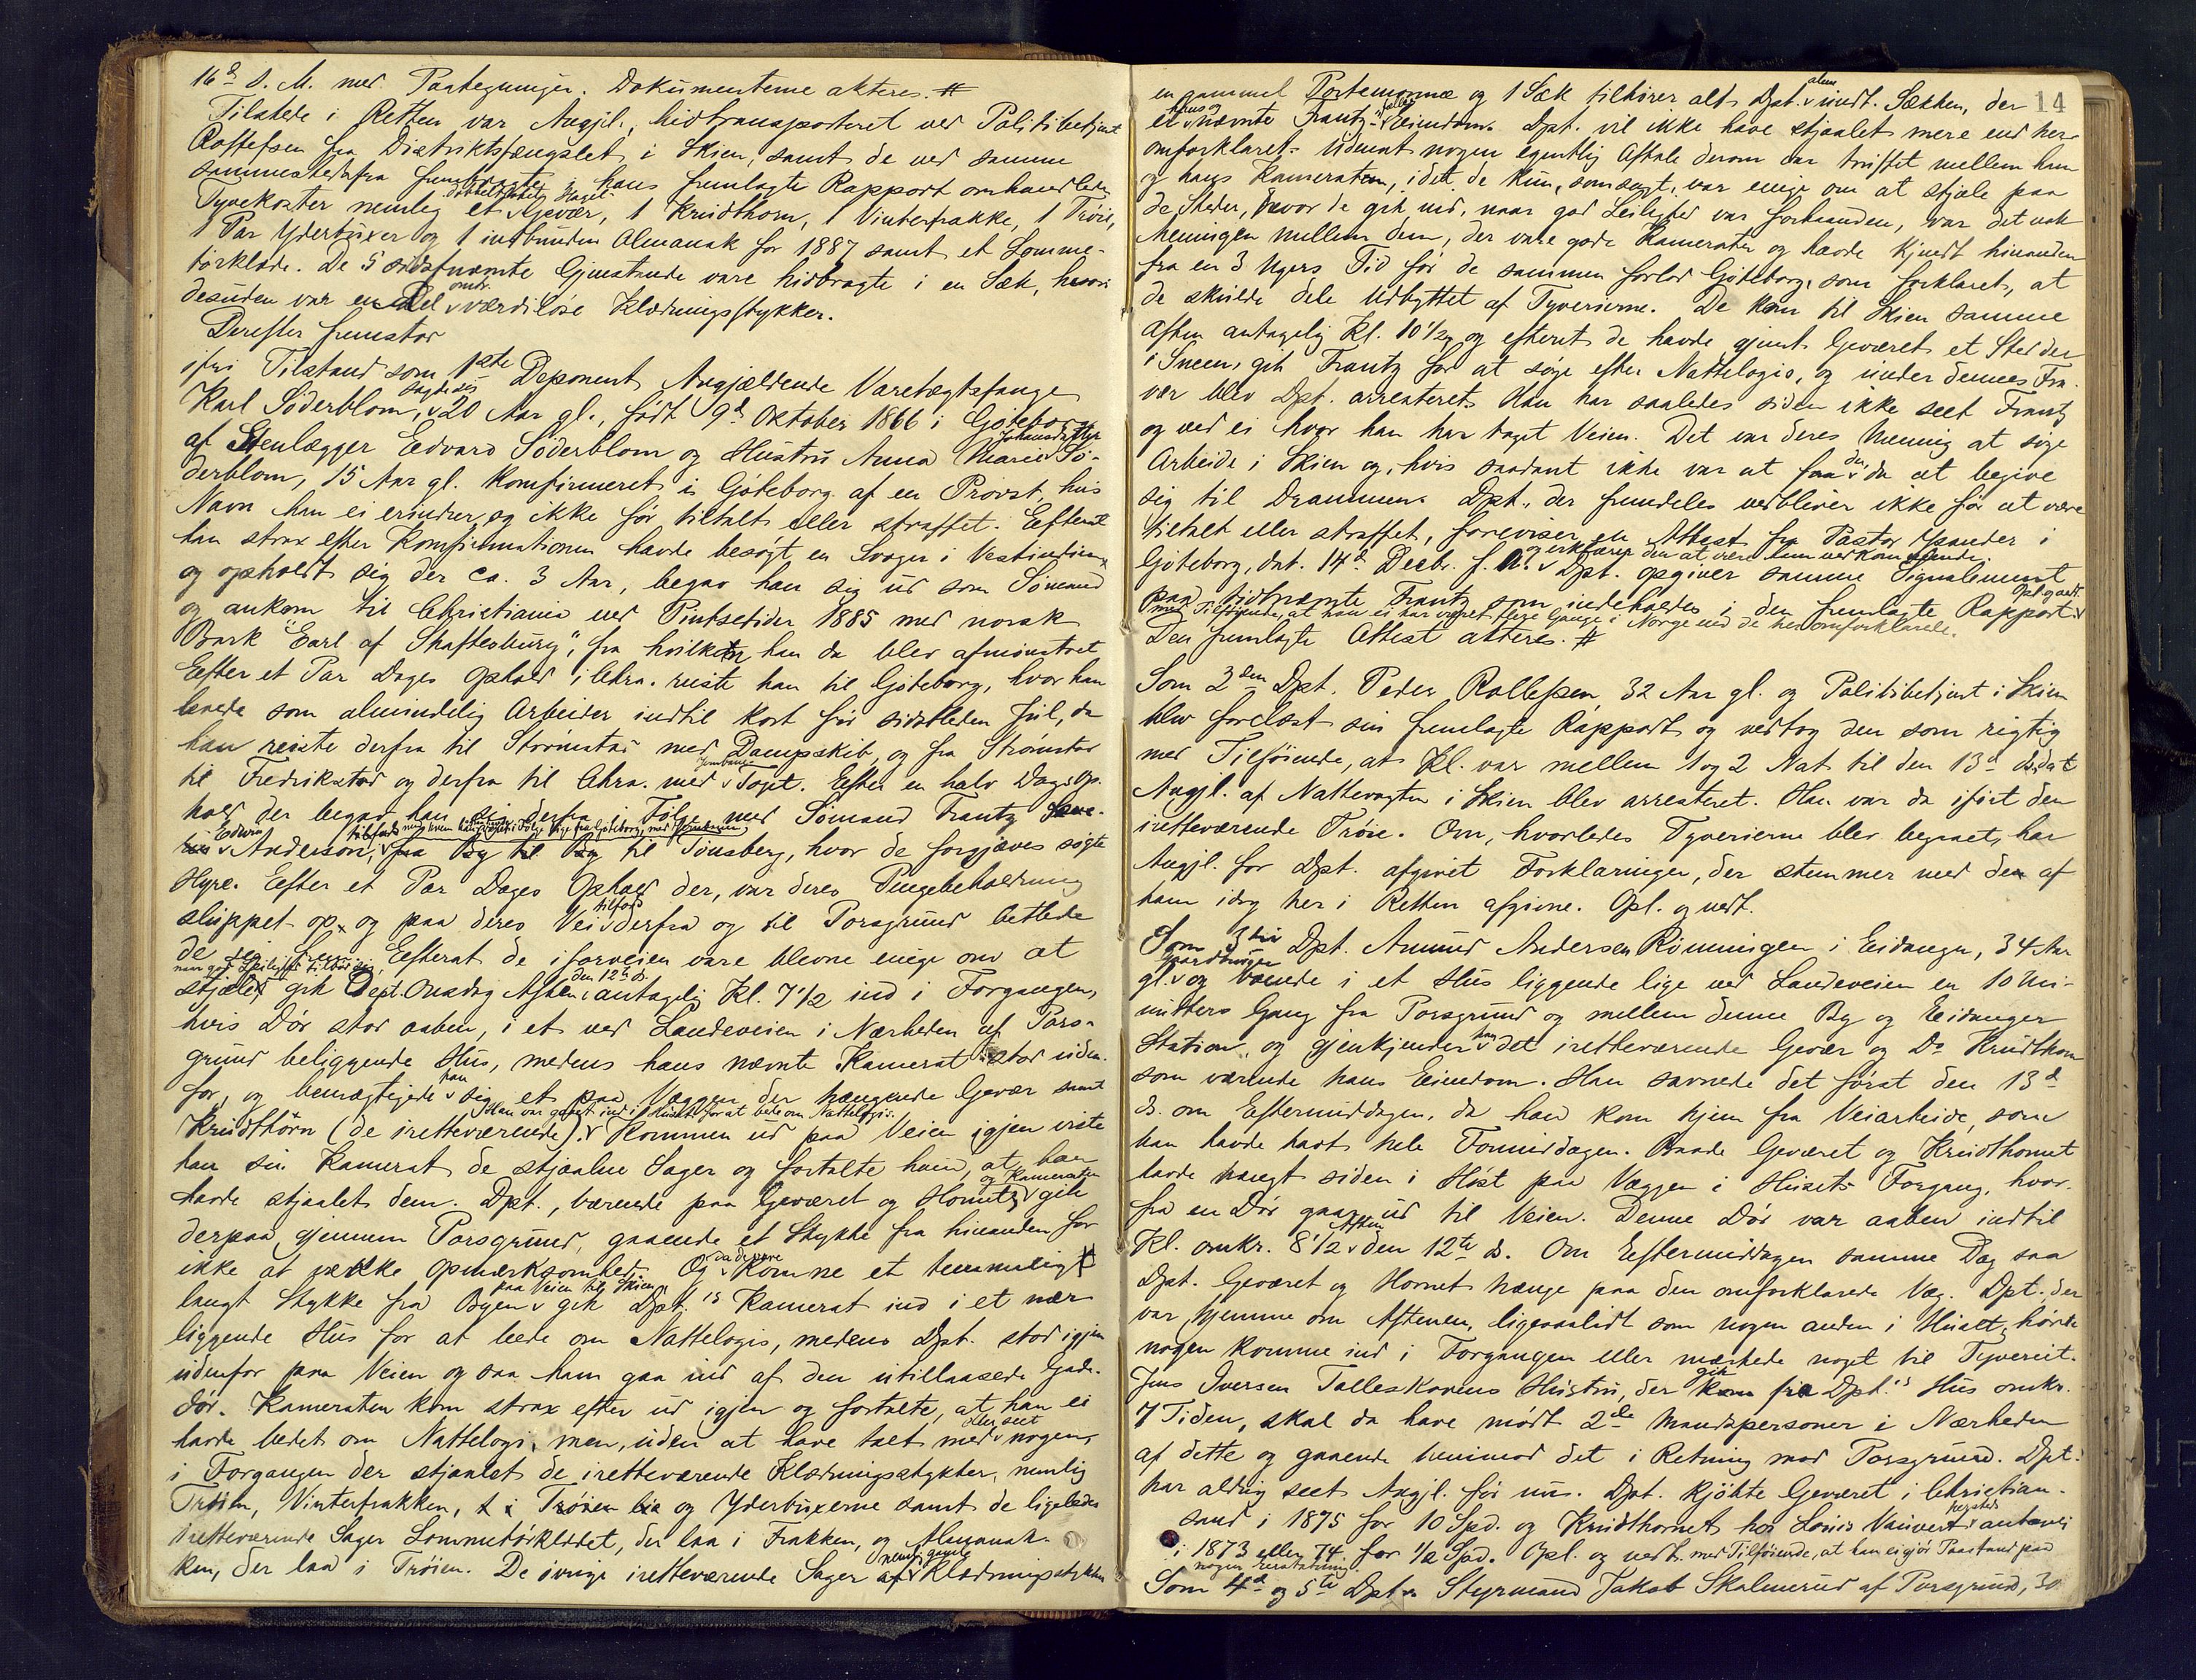 16de d. M. med Paategninger. Dokumenterne akteres. #
Tilstede i Retten var Angjl., hidtransporteret ved Politibetjent
Rollefsen fra Distriktsfængslet i Skien, samt de ved samme
sammestedsfra frembragte, i hans fremlagte Rapport omhandlede
Tyvekoster nemlig et dobbeltløbet Hagel- Gevær, 1 Krudthorn, 1 Vinterfrakke, 1 Trøie,
1 Par Yderbuxer og 1 indbunden Almanak for 1887 samt et Lomme-
tørklæde. De 5 sidstnævnte Gjenstande vare hidbragte i en Sæk, hvori
desuden var en Del omtr. værdiløse Klædningsstykker.
Derefter fremstod
ifri Tilstand som 1ste Deponent Angjældende Varetægtsfange
Karl Söderblom, sagde sig 20 Aar gl., født 9de Oktober 1866 i Göteborg
af Stenlægger Edvard Söderblom og Hustru Anna Marie Johansdatter Sö-
derblom, 15 Aar gl. konfirmeret i Göteborg af en Provst, hvis
Navn han ei erindrer, og ikke før tiltalt eller straffet. Efterat
han strax efter Konfirmationen havde besøgt en Svoger i Vestindien
og opholdt sig der ca. 3 Aar, begav han sig ud som Sömand
og ankom til Christiania ved Pintsetider 1885 med norsk
Bark "Earl of Shaftesbury", fra hvilken han da blev afmönstret.
Efter et Par Dages Ophold i Chra. reiste han til Göteborg, hvor han
levede som almindelig Arbeider indtil kort før sidstleden Jul, da
han reiste derfra til Strömstad med Dampskib, og fra Strömstad
til Fredrikstad og derfra til Chra. med Jernbane- Toget. Efter en halv Dags Op-
hold der begav han sig derfra i Følge med Sömand Frantz
Edvin Anderson, tilfods med hvem han var reist i Følge lige fra Göteborg, med Jernbanen, fra By til By til Tönsberg, hvor de forgjæves søgte
Hyre. Efter et Par Dages Ophold der, var deres Pengebeholdning
sluppet op, og paa deres Vei tilfods derfra og til Porsgrund betlede
de sig frem. Efterat de iforveien vare blevne enige om at
stjæle, naar god Leilighed tilbød sig, gik Dept. Onsdag Aften den 12te ds. antagelig Kl. 7 1/2 ind i Forgangen,
hvis Dør stod aaben, i et ved Landeveien i Nærheden af Pors-
grund beliggende Hus, medens hans nævnte Kamerat stod uden-
for, og bemægtigede han sig et paa Væggen der hængende Gevær samt
Krudthorn (de iretteværende). Han var gaaet ind i Huset for at bede om Nattelogi. Kommen ud paa Veien igjen viste
han sin Kamerat de stjaalne Sager og fortalte ham, at han
havde stjaalet dem. Dpt., bærende paa Geværet og Hornet, og Kameraten gik
derpaa gjennem Porsgrund, gaaende et Stykke fra hinanden for
ikke at vække Opmærksomhed. Og da de vare komne et temmeligt
langt Stykke fra Byen paa Veien til Skien gik Dpt.'s Kamerat ind i et nær-
liggende Hus for at bede om Nattelogis, medens Dpt. stod igjen
udenfor paa Veien og saa ham gaa ind af den utillaasede Gade-
dør. Kameraten kom strax efter ud igjen og fortalte, at han ei
havde bedet om Nattelogi, men, uden at have talt med eller seet nogen,
i Forgangen der stjaalet de iretteværende Klædningsstykker, nemlig
Trøien, Vinterfrakken, og Yderbuxerne samt de ligeledes
iretteværende Sager Lommetørklædet, der laa i Frakken, og Almanak-
ken, der laa i Trøien. De øvrige iretteværende Sager af Klædningsstykker
14
en gammel Portemonnæ og 1 Sæk tilhører alt Dpt. alene undt. Sækken, der
er hans og nævnte Frantz' fælles Eiendom. Dpt. vil ikke have stjaalet mere end her
omforklaret. Udenat nogen egentlig Aftale derom var truffet mellem ham
og hans Kameraten, idet de kun, som sagt, var enige om at stjæle paa
de Steder, hvor de gik ind, naar god Leilighed var forhaanden, var det nok
Meningen mellem dem, der vare gode Kamerater og havde kjendt hinanden
fra en 3 Ugers Tid før de sammen forlod Göteborg, som forklaret, at
de skulde dele Udbyttet af Tyverierne. De kom til Skien samme
Aften antagelig Kl. 10 1/2, og efterat de havde gjemt Geværet et Sted der
i Sneen, gik Frantz for at søge efter Nattelogis, og under dennes Fra-
vær blev Dpt. arresteret. Han har saaledes siden ikke seet Frantz
og ved ei hvor han har taget Veien. Det var deres Mening at søge
Arbeide i Skien og, hvis saadant ikke var at faa der, da at begive
sig til Drammen. Dpt., der fremdeles vedbliver ikke før at være
tiltalt eller straffet, foreviser en Attest fra Pastor i
Göteborg, dat. 14de Decbr. f. A. og erklærer den at være ham vedkommende. Dpt. opgiver samme Signalement
paa sidstnævnte Frantz som indeholdes i den fremlagte Rapport. Opl. og vedt.
med Tilføiende, at han ei har været flere Gange i Norge end de her omforklarede.
Den fremlagte Attest akteres. #
Som 2den Dpt. Peder Rollefsen, 32 Aar gl. og Politibetjent i Skien
blev forelæst sin fremlagte Rapport og vedtog den som rigtig
med Tilføiende, at Kl. var mellem 1 og 2 Nat til den 13de ds. da
Angjl. af Nattevagten i Skien blev arresteret. Han var da iført den
iretteværende Trøie. Om, hvorledes Tyverierne blev begaaet, har
Angjl. for Dpt. afgivet Forklaringer, der stemmer med den af
ham idag her i Retten afgivne. Opl. og vedt.
Som 3die Dpt. Amund Andersen Rönningen i Eidanger, 34 Aar
gl. Gaardbruger og boende i et Hus liggende lige ved Landeveien en 10 Mi-
nutters Gang fra Porsgrund og mellem denne By og Eidanger
Station, og gjenkjender han det iretteværende Gevær og Do Krudthorn
som værende hans Eiendom. Han savnede det først den 13de
ds. om Eftermiddagen, da han kom hjem fra Veiarbeide, som
han havde havt hele Formiddagen. Baade Geværet og Krudthornet
havde hængt siden i Høst paa Væggen i Husets Forgang, hvor-
fra en Dør gaar ud til Veien. Denne Dør var aaben indtil
Kl. omkr. 8 1/2 Aften den 12te ds. Om Eftermiddagen samme Dag saa
Dpt. Geværet og Hornet hænge paa den omforklarede Væg. Dpt., der
var hjemme om Aftenen, ligesaalidt som nogen anden i Huset, hørte
nogen komme ind i Forgangen eller mærkede noget til Tyveriet.
Jens Iversen Tolleskovens Hustru, der gik fra Dpt.'s Hus omkr.
7 Tiden, skal da have mødt 2de Mandspersoner i Nærheden
af dette og gaaende henimod det i Retning mod Porsgrund. Dpt.
har aldrig seet Angjl. før nu. Dpt. kjöbte Geværet i Christian-
sand i 1875 for 10 Spd. og Krudthornet hos Louis Vauvert
i 1873 eller 74 for 1/2 Spd. Opl. og vedt. med Tilføiende, at han ei gjør Paastand paa
nogen Erstatning.
Som 4de og 5te Dpt. Styrmand Jakob Skalmerud af Porsgrund, 30